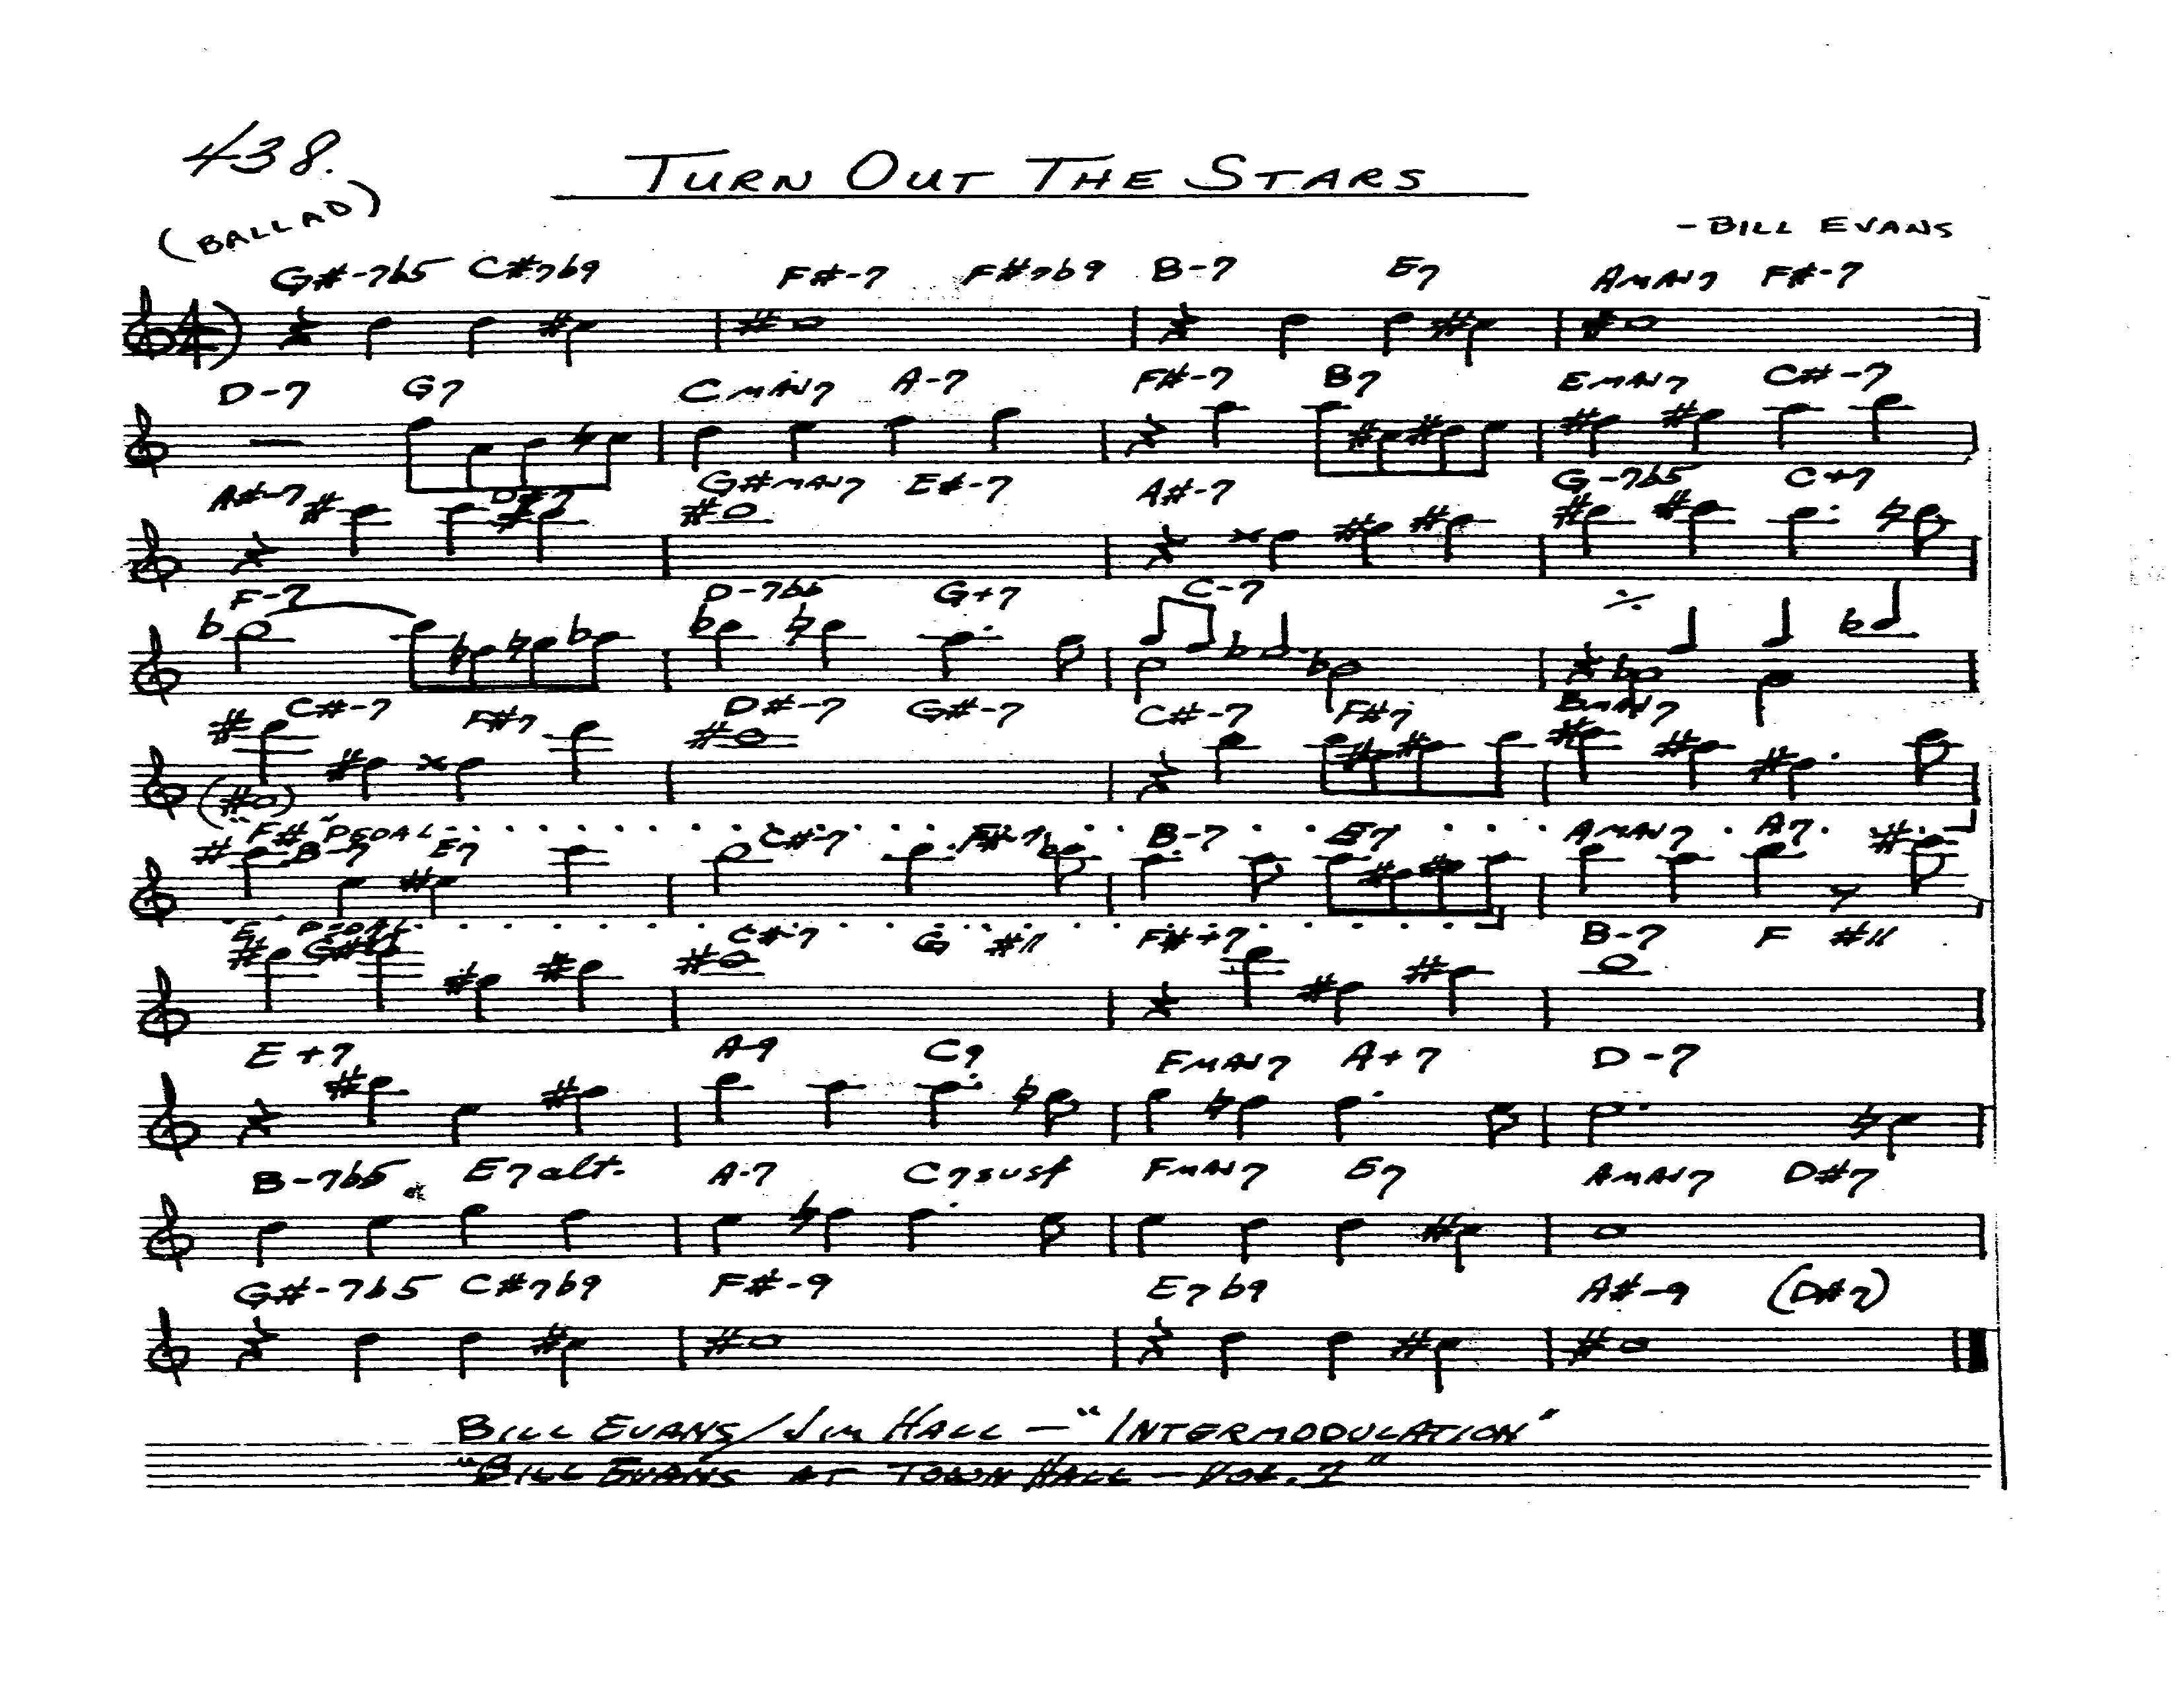 438.
TURN OUT THE STARS
(BALLAD)
- BILL EVANS
G#-7b5 C#7b9 F#-7 F#7b9 B-7 E7 AMAJ7 F#-7
D-7 G7 CMAJ7 A-7 F#-7 B7 EMAJ7 C#-7
A#-7 D#7 G#MAJ7 E#-7 A#-7 G-7b5 C+7
F-7 D-7b5 G+7 C-7
C#-7 F#7 D#-7 G#-7 C#-7 F#7 BMAJ7
F# PEDAL
B-7 E7 C#-7 F#7 B-7 E7 AMAJ7 A7
E PEDAL
C#-7 G #11 F#+7 B-7 F #11
E+7 A-9 C9 FMAJ7 A+7 D-7
B-7b5 E7alt. A-7 C7sus4 FMAJ7 E7 AMAJ7 D#7
G#-7b5 C#7b9 F#-9 E7b9 A#-9 (D#7)
BILL EVANS/JIM HALL - "INTERMODULATION"
"BILL EVANS AT TOWN HALL - VOL. 1"